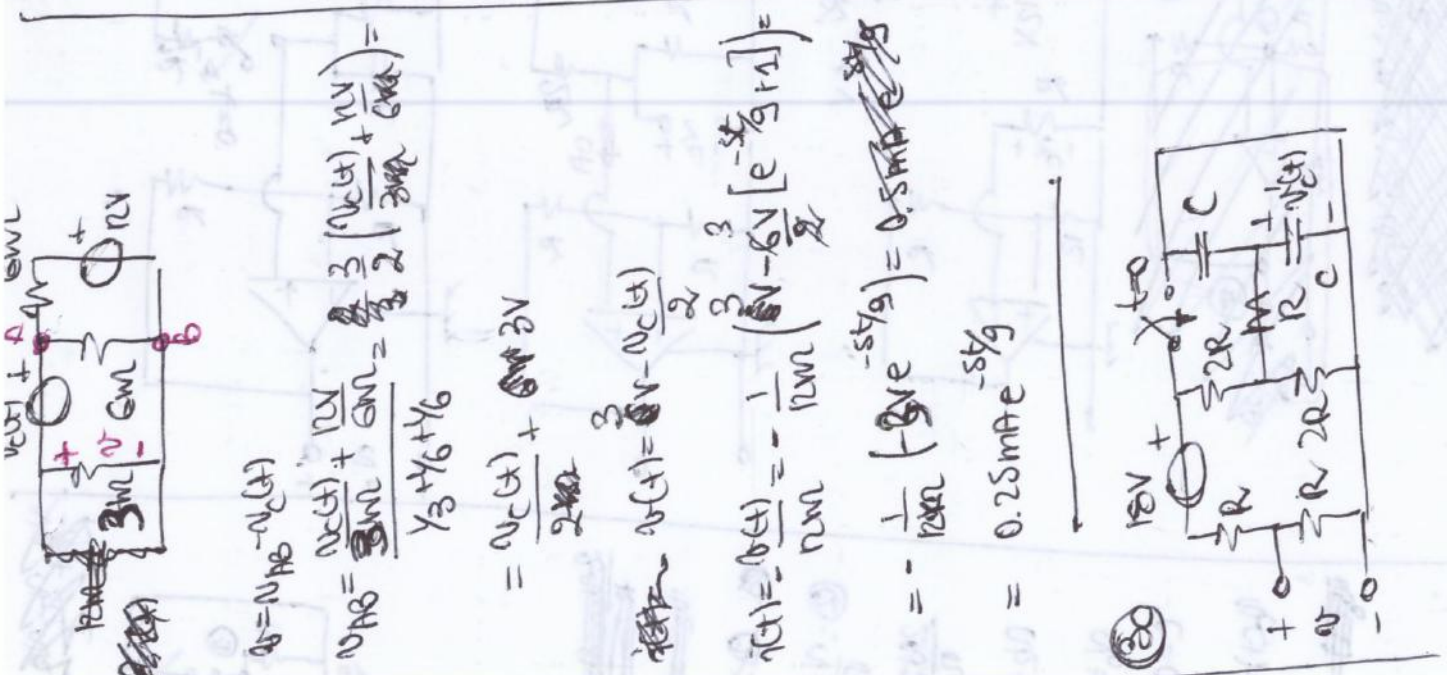 v_C(t) + A 6kΩ
12V
+ v -
3kΩ 6kΩ
B
v = v_AB - v_C(t)
v_AB = (v_C(t)/3kΩ + 12V/6kΩ)/(1/3+1/6+1/6) = 3/2 (v_C(t)/3kΩ + 12V/6kΩ) =
= v_C(t)/2 + 3V
v(t) = 3V - v_C(t)/2
i(t) = - v(t)/12kΩ = - 1/12kΩ (3V - 6V/2 [e^{-5t/9}+1]) =
= - 1/12kΩ (-3V e^{-5t/9}) = 0.25mA e^{-5t/9}
= 0.25mA e^{-5t/9}
30
18V +
t=0
R 2R C
+ v -
R 2R R C + v_C(t) -